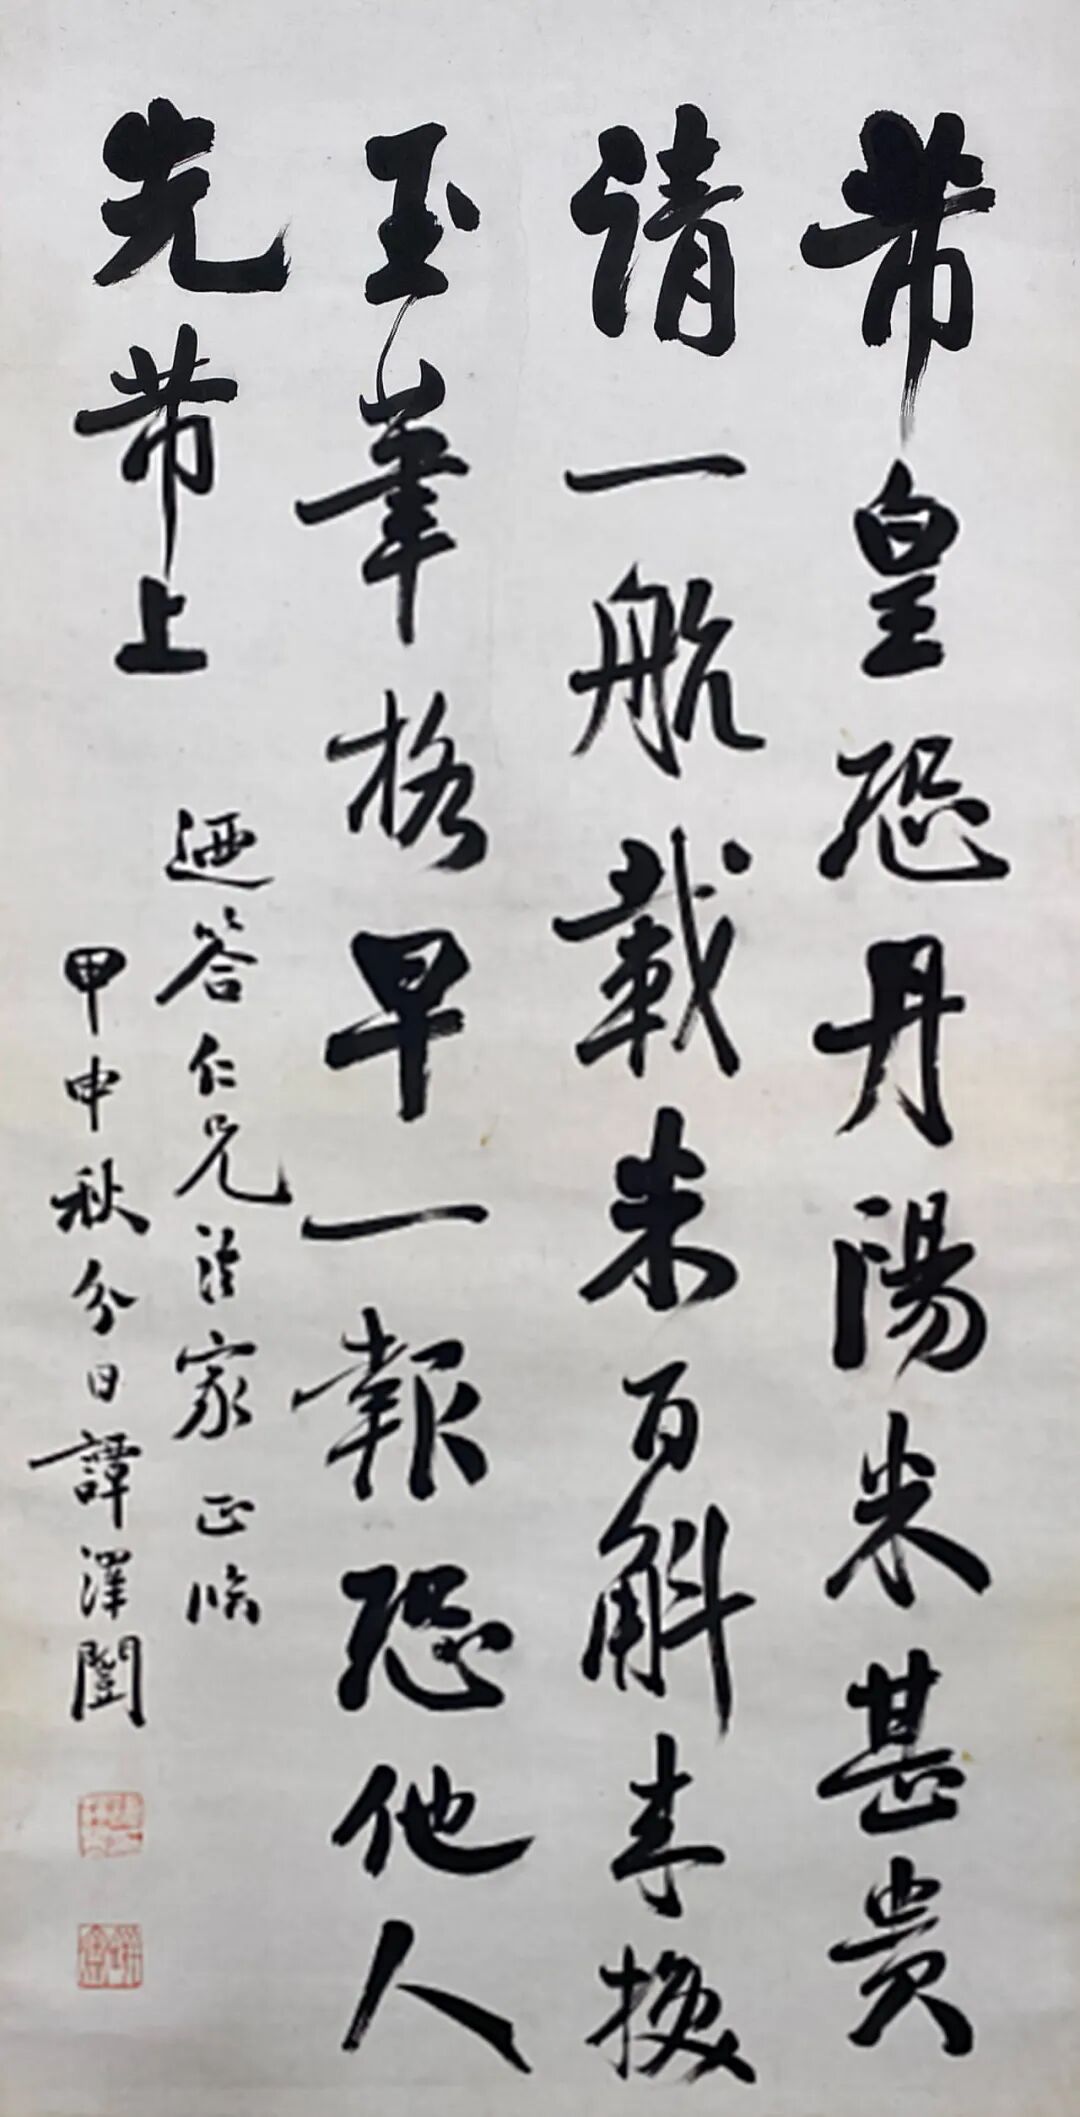 芾皇恐丹陽米甚貴
請一航載米百斛来換
玉筆格早一報恐他人
先芾上
迺答仁兄法家正临
甲申秋分日譚澤闓